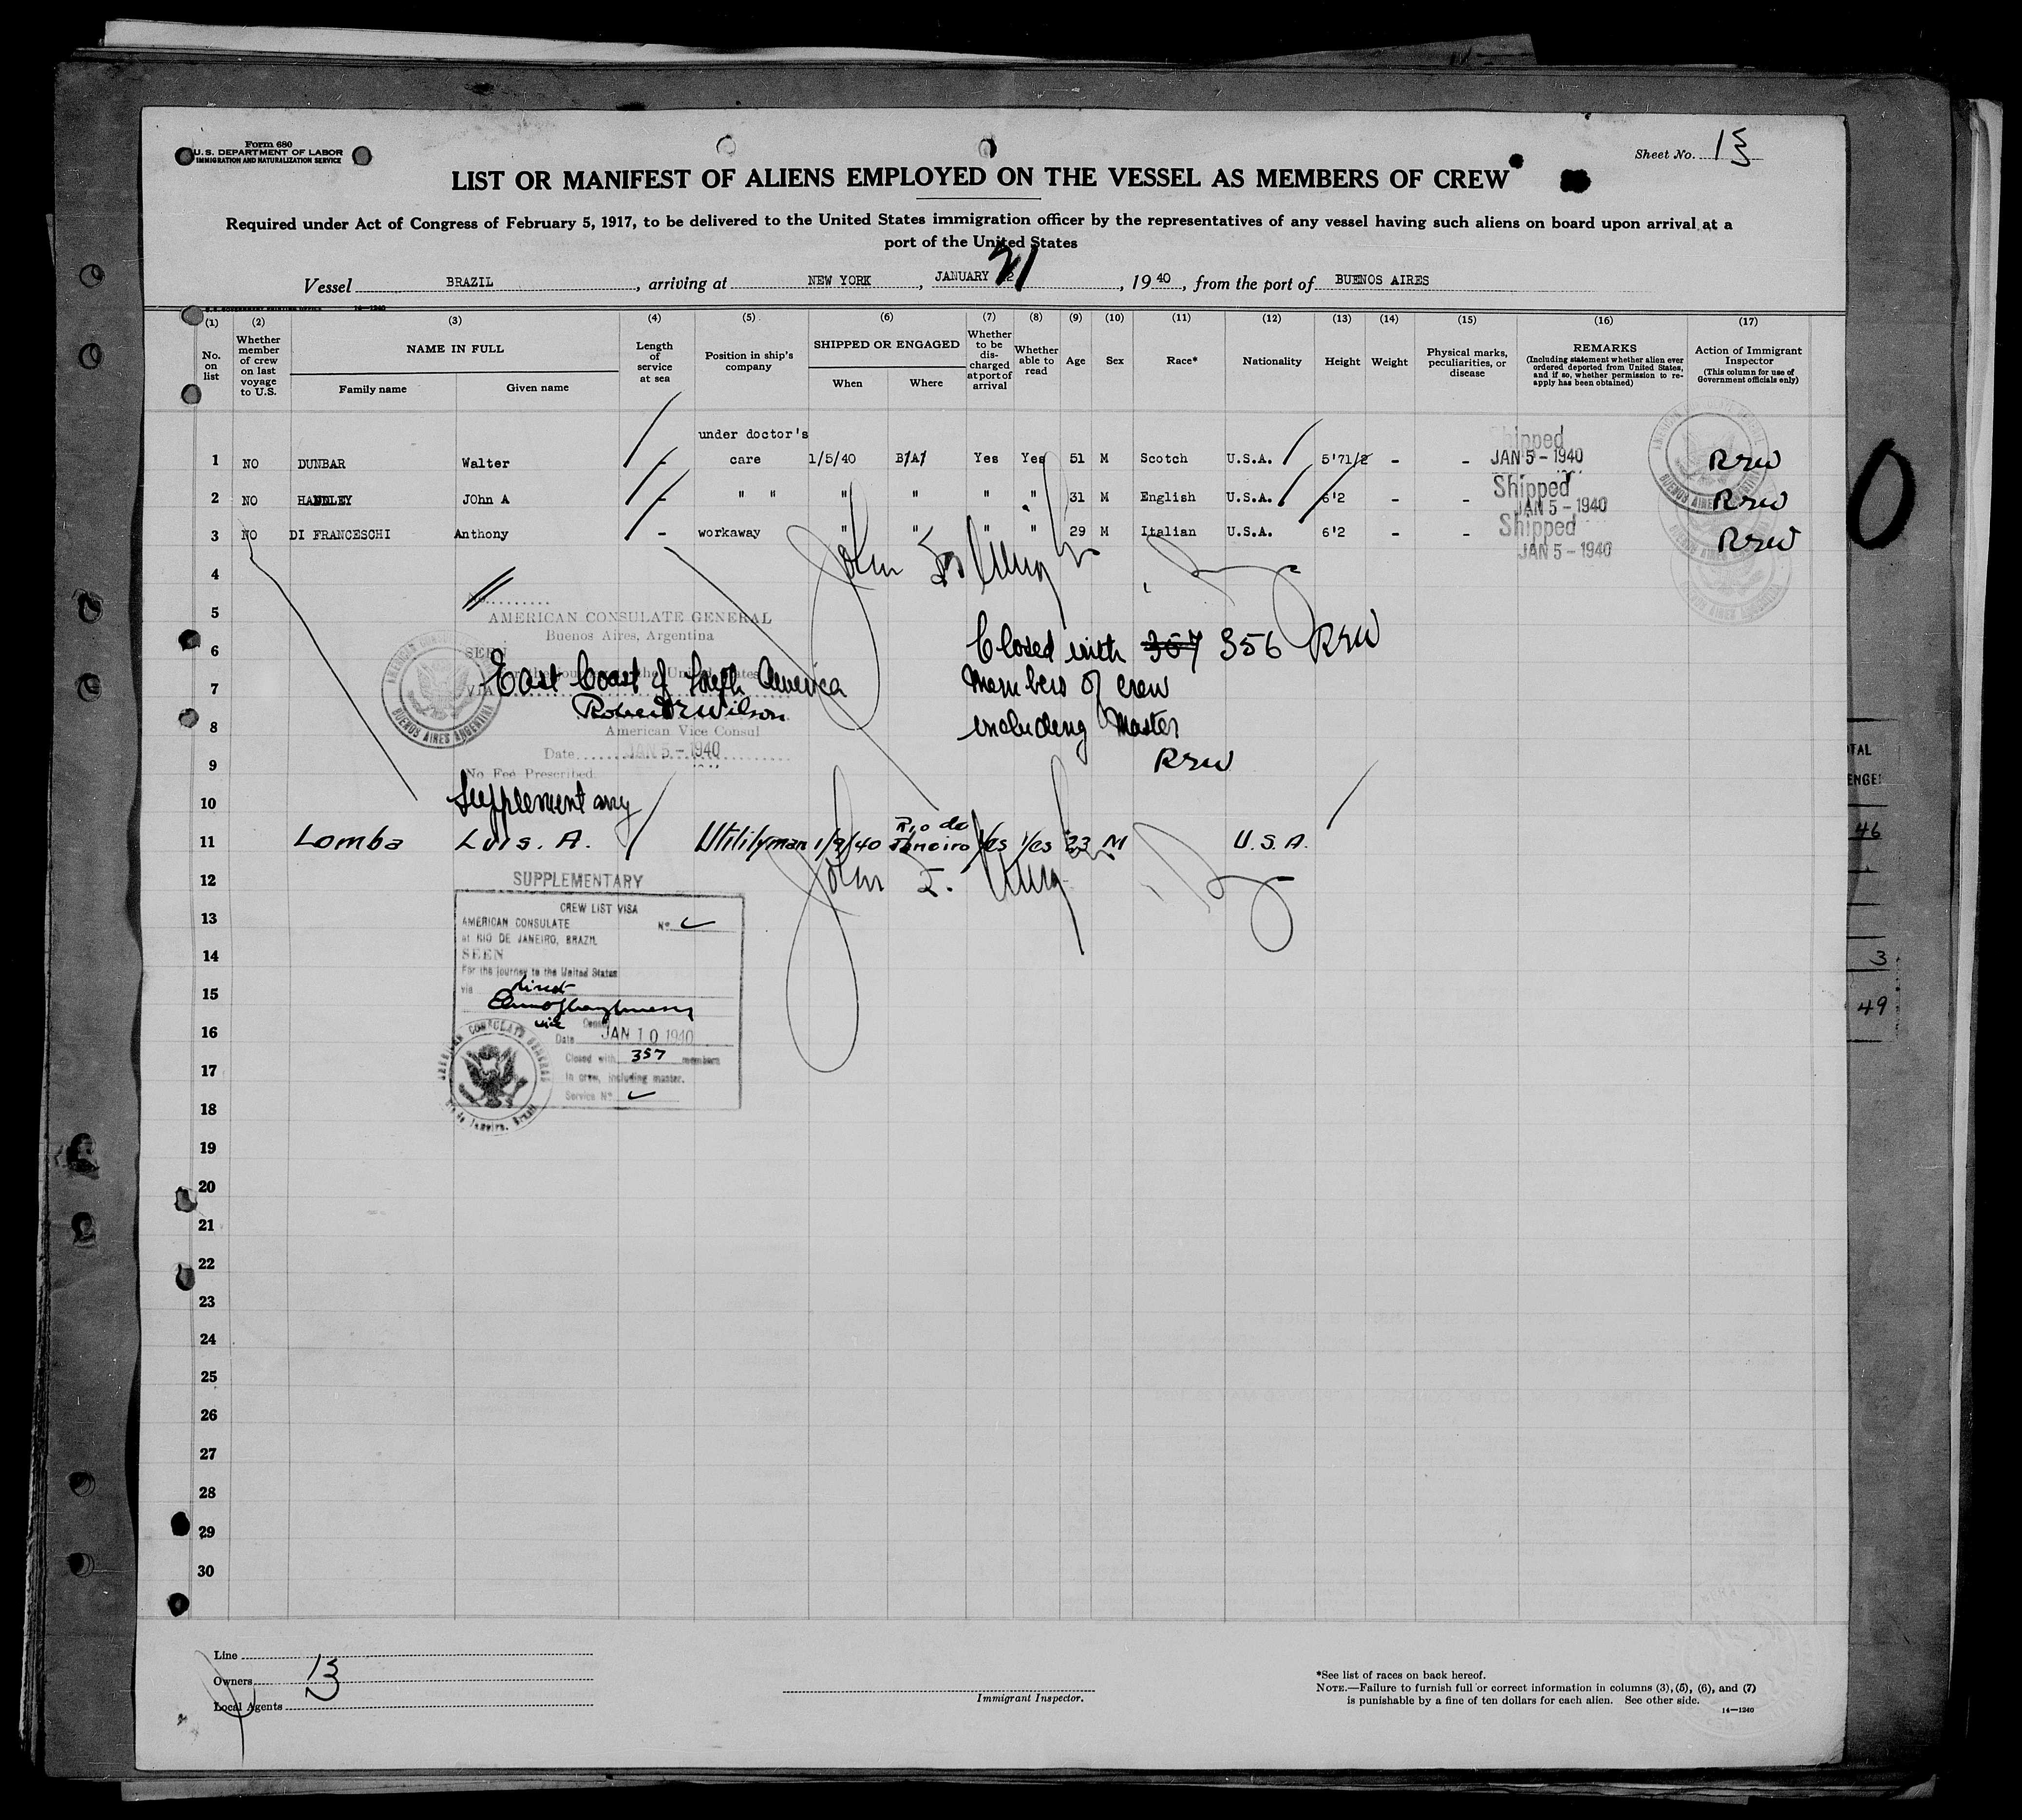 Form 680
U.S. DEPARTMENT OF LABOR
IMMIGRATION AND NATURALIZATION SERVICE
Sheet No. 13
LIST OR MANIFEST OF ALIENS EMPLOYED ON THE VESSEL AS MEMBERS OF CREW
Required under Act of Congress of February 5, 1917, to be delivered to the United States immigration officer by the representatives of any vessel having such aliens on board upon arrival at a
port of the United States
Vessel BRAZIL, arriving at NEW YORK, JANUARY 21, 1940, from the port of BUENOS AIRES
14—1240
(1) (2) (3) (4) (5) (6) (7) (8) (9) (10) (11) (12) (13) (14) (15) (16) (17)
No. on list
Whether member of crew on last voyage to U.S.
NAME IN FULL
Family name
Given name
Length of service at sea
Position in ship's company
SHIPPED OR ENGAGED
When
Where
Whether to be discharged at port of arrival
Whether able to read
Age
Sex
Race*
Nationality
Height
Weight
Physical marks, peculiarities, or disease
REMARKS
(Including statement whether alien ever ordered deported from United States, and if so, whether permission to reapply has been obtained)
Action of Immigrant Inspector
(This column for use of Government officials only)
under doctor's
1 NO DUNBAR Walter - care 1/5/40 B/A/ Yes Yes 51 M Scotch U.S.A. 5'71/2 - - Shipped JAN 5 - 1940 RSW
2 NO HANDLEY JOhn A - " " " " " " 31 M English U.S.A. 6'2 - - Shipped JAN 5 - 1940 RSW
3 NO DI FRANCESCHI Anthony - workaway " " " " 29 M Italian U.S.A. 6'2 - - Shipped JAN 5 - 1940 RSW
4
5
6
7
8
9
10
No.
AMERICAN CONSULATE GENERAL
Buenos Aires, Argentina
SEEN
VIA East Coast of South America
Robert Wilson
American Vice Consul
Date JAN 5 - 1940
No Fee Prescribed.
BUENOS AIRES ARGENTINA
Closed with 357 356 RSW
Members of crew
including Master
RSW
Supplementary
11 Lomba Luis. A. Utilityman 1/9/40 Rio de Janeiro Yes Yes 23 M U.S.A.
12
SUPPLEMENTARY
CREW LIST VISA
AMERICAN CONSULATE No.
at RIO DE JANEIRO, BRAZIL
SEEN
For the journey to the United States
via direct
vice Consul
Date JAN 10 1940
Closed with 357 members
in crew, including master.
Service No.
AMERICAN CONSULATE GENERAL
Rio de Janeiro, Brazil
13
14
15
16
17
18
19
20
21
22
23
24
25
26
27
28
29
30
Line
Owners
Local Agents
13
Immigrant Inspector.
*See list of races on back hereof.
NOTE.—Failure to furnish full or correct information in columns (3), (5), (6), and (7)
is punishable by a fine of ten dollars for each alien. See other side.
14—1240
46
3
49